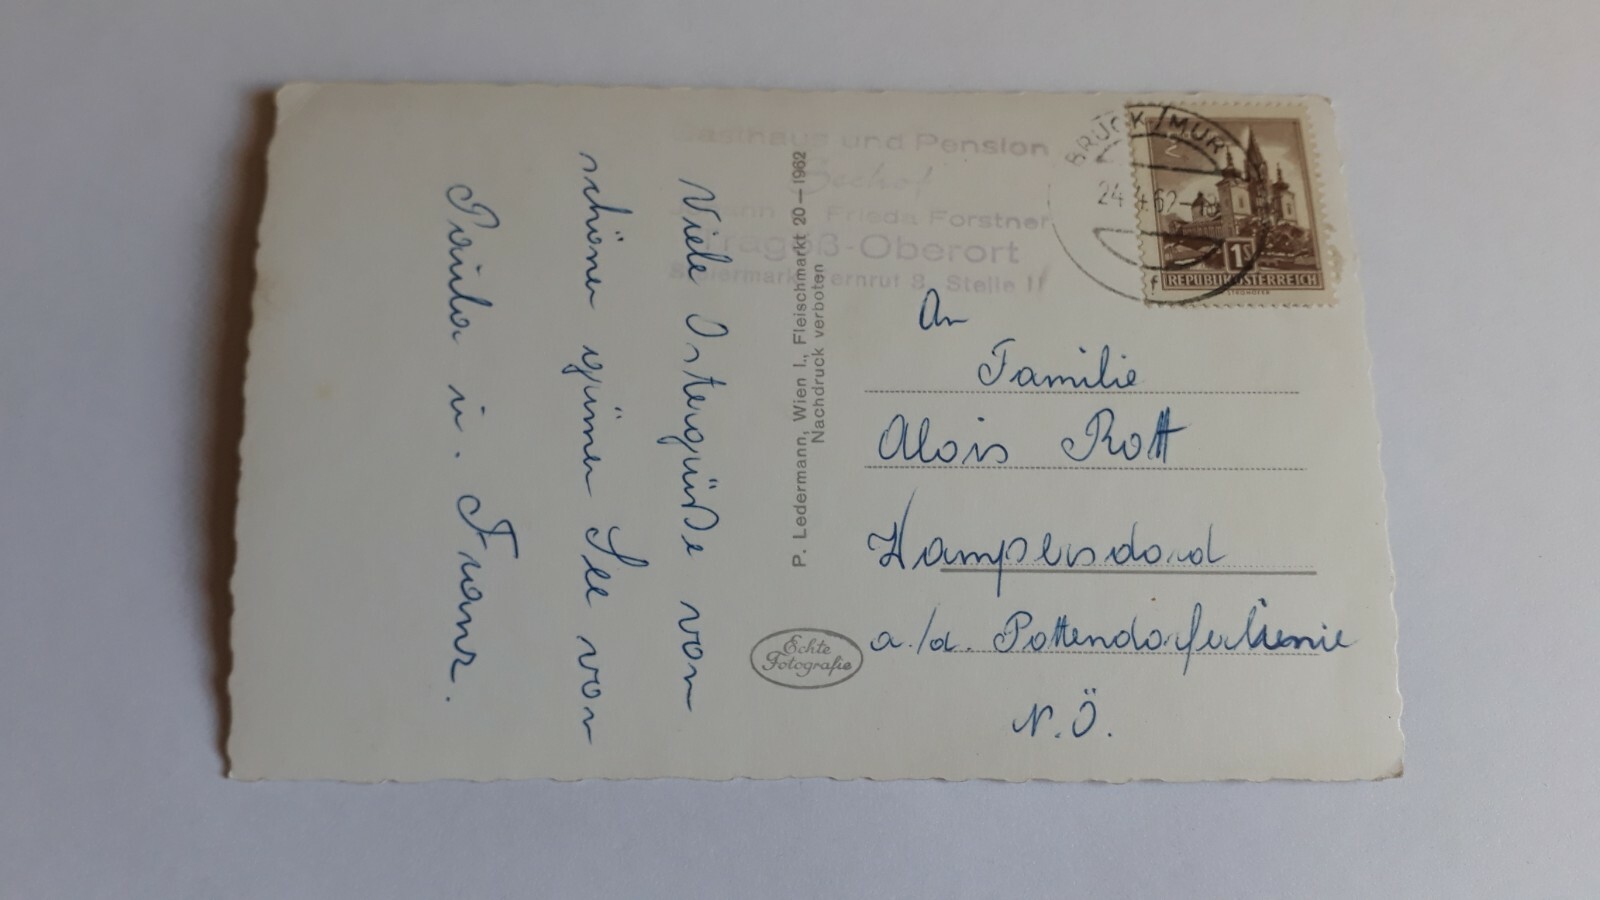 Viele Ostergrüße von
schönen grünen See von
Paula u. Franz.
P. Ledermann, Wien I., Fleischmarkt 20—1962
Nachdruck verboten
Echte
Fotografie
Gasthaus und Pension
Seehof
Johann Frieda Forstner
Tragöß-Oberort
Steiermark, Fernruf 8, Stelle 11
BRUCK/MUR
24.4.62-18
f
1S
REPUBLIK ÖSTERREICH
An
Familie
Alois Rott
Wampersdorf
a./d. Pottendorferlinie
N.Ö.